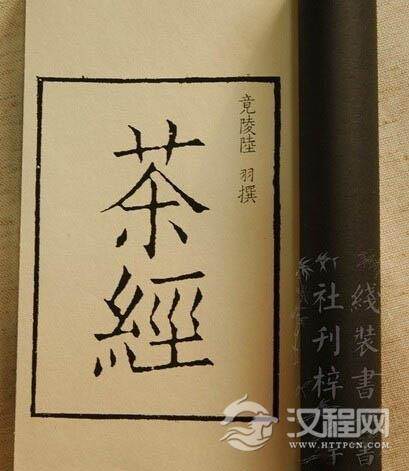 竟陵陸 羽撰
茶經
綫装書
社刊梓
汉程网
HTTPCN.COM